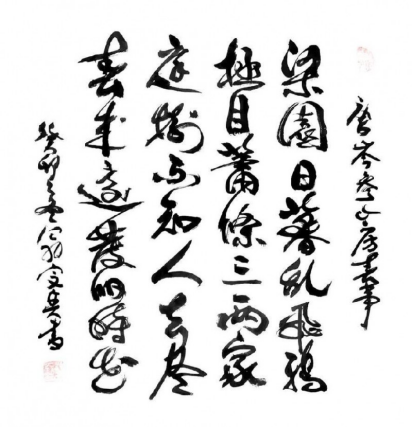 唐岑參山房春事
梁園日暮乱飛鴉
極目蕭條三兩家
庭樹不知人去尽
春來還發旧時花
癸卯書